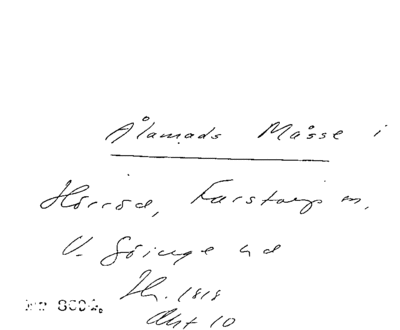 Ålamads Måsse i
Hörröd, Farstorps sn,
V. Göinge hd
Hr. 1818
Akt 10